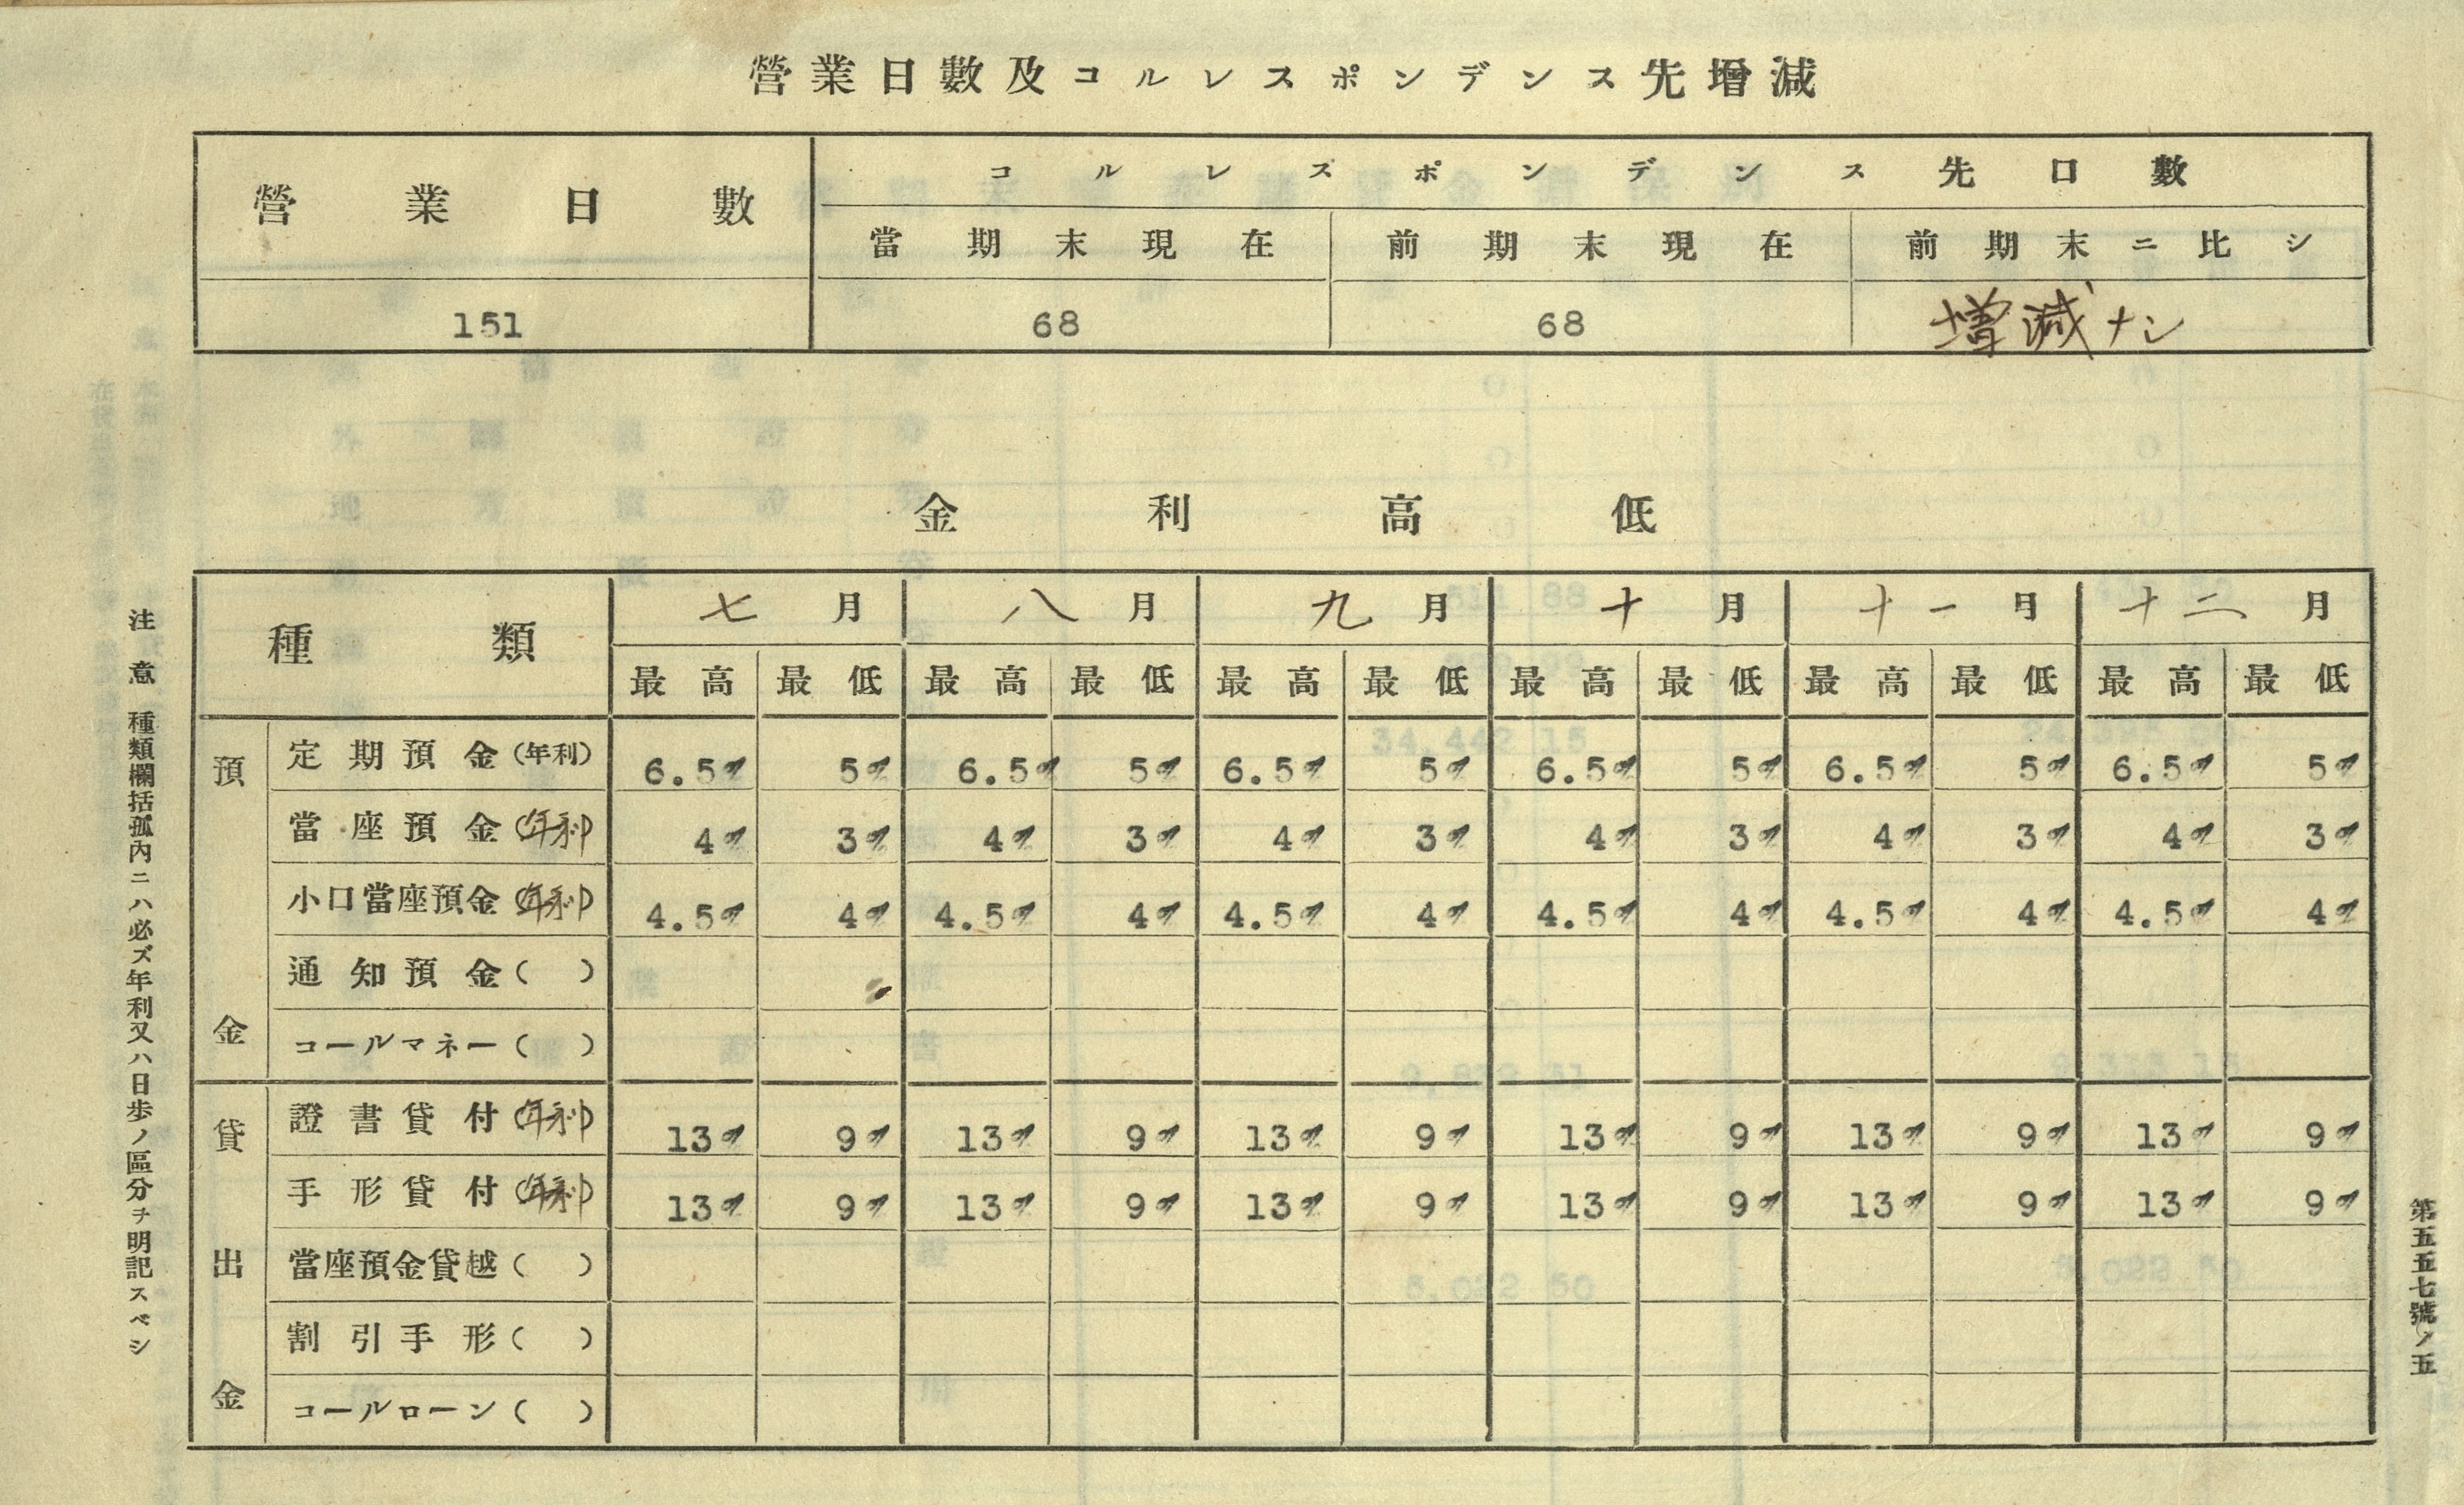 營業日數及コルレスポンデンス先增減
營業日數
コルレスポンデンス先口數
當期末現在 前期末現在 前期末ニ比シ
151 68 68 増減ナシ
金利高低
種類 七月 八月 九月 十月 十一月 十二月
最高 最低 最高 最低 最高 最低 最高 最低 最高 最低 最高 最低
預金
定期預金(年利) 6.5 5 6.5 5 6.5 5 6.5 5 6.5 5 6.5 5
當座預金(年利) 4 3 4 3 4 3 4 3 4 3 4 3
小口當座預金(年利) 4.5 4 4.5 4 4.5 4 4.5 4 4.5 4 4.5 4
通知預金( )
コールマネー( )
貸出金
證書貸付(年利) 13 9 13 9 13 9 13 9 13 9 13 9
手形貸付(年利) 13 9 13 9 13 9 13 9 13 9 13 9
當座預金貸越( )
割引手形( )
コールローン( )
注意 種類欄括孤內ニハ必ズ年利又ハ日步ノ區分ヲ明記スベシ
第五五七號ノ五